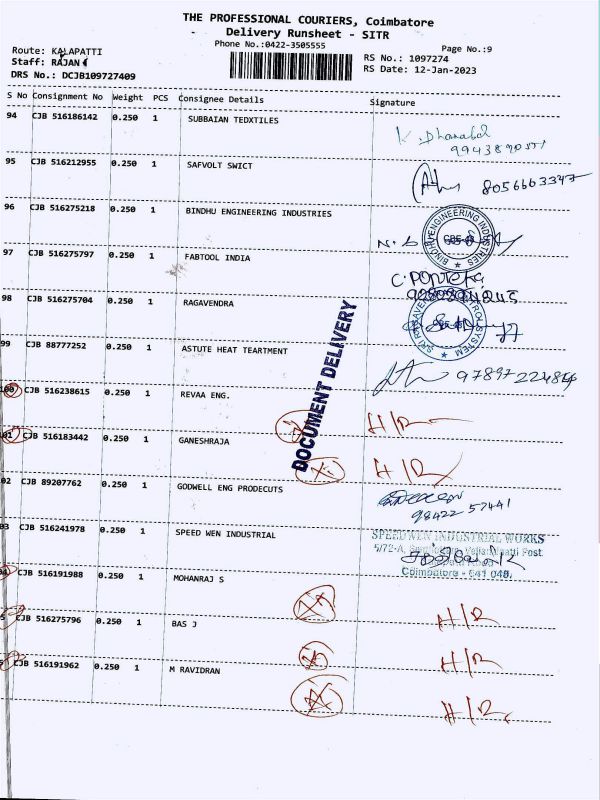 THE PROFESSIONAL COURIERS, Coimbatore
Delivery Runsheet - SITR
Phone No.:0422-3505555
Page No.:9
Route: KALAPATTI
Staff: RAJAN
DRS No.: DCJB109727409
RS No.: 1097274
RS Date: 12-Jan-2023
S No Consignment No Weight PCS Consignee Details Signature
94 CJB 516186142 0.250 1 SUBBAIAN TEDXTILES
95 CJB 516212955 0.250 1 SAFVOLT SWICT
8056663347
96 CJB 516275218 0.250 1 BINDHU ENGINEERING INDUSTRIES
BINDHU ENGINEERING INDUSTRIES
97 CJB 516275797 0.250 1 FABTOOL INDIA
98 CJB 516275704 0.250 1 RAGAVENDRA
99 CJB 88777252 0.250 1 ASTUTE HEAT TEARTMENT
DOCUMENT DELIVERY
100 CJB 516238615 0.250 1 REVAA ENG.
H/R
101 CJB 516183442 0.250 1 GANESHRAJA
H/R
02 CJB 89207762 0.250 1 GODWELL ENG PRODECUTS
98422 57441
03 CJB 516241978 0.250 1 SPEED WEN INDUSTRIAL
SPEED WEN INDUSTRIAL WORKS
Coimbatore - 641 048.
04 CJB 516191988 0.250 1 MOHANRAJ S
H/R
5 CJB 516275796 0.250 1 BAS J
H/R
CJB 516191962 0.250 1 M RAVIDRAN
H/R